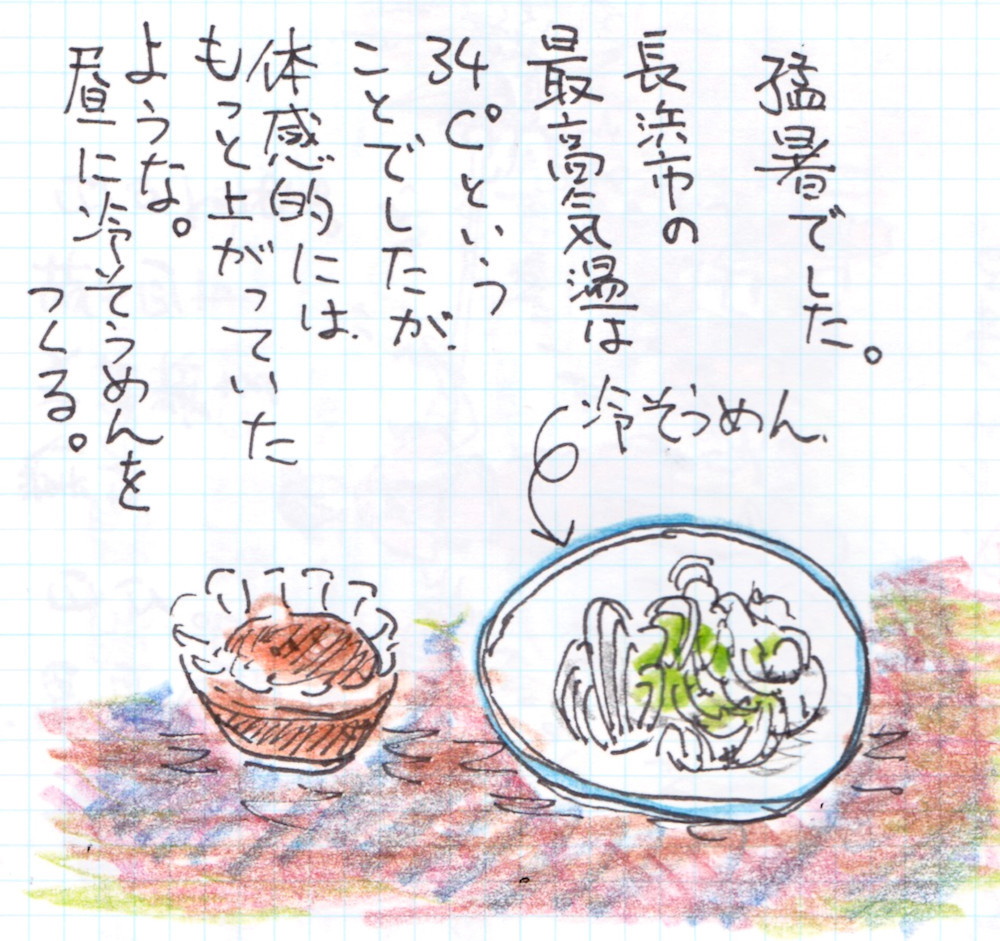 猛暑でした。
長浜市の
最高気温は
34℃という
ことでしたが、
体感的には、
もっと上がっていた
ような。
昼に冷そうめんを
つくる。
冷そうめん、